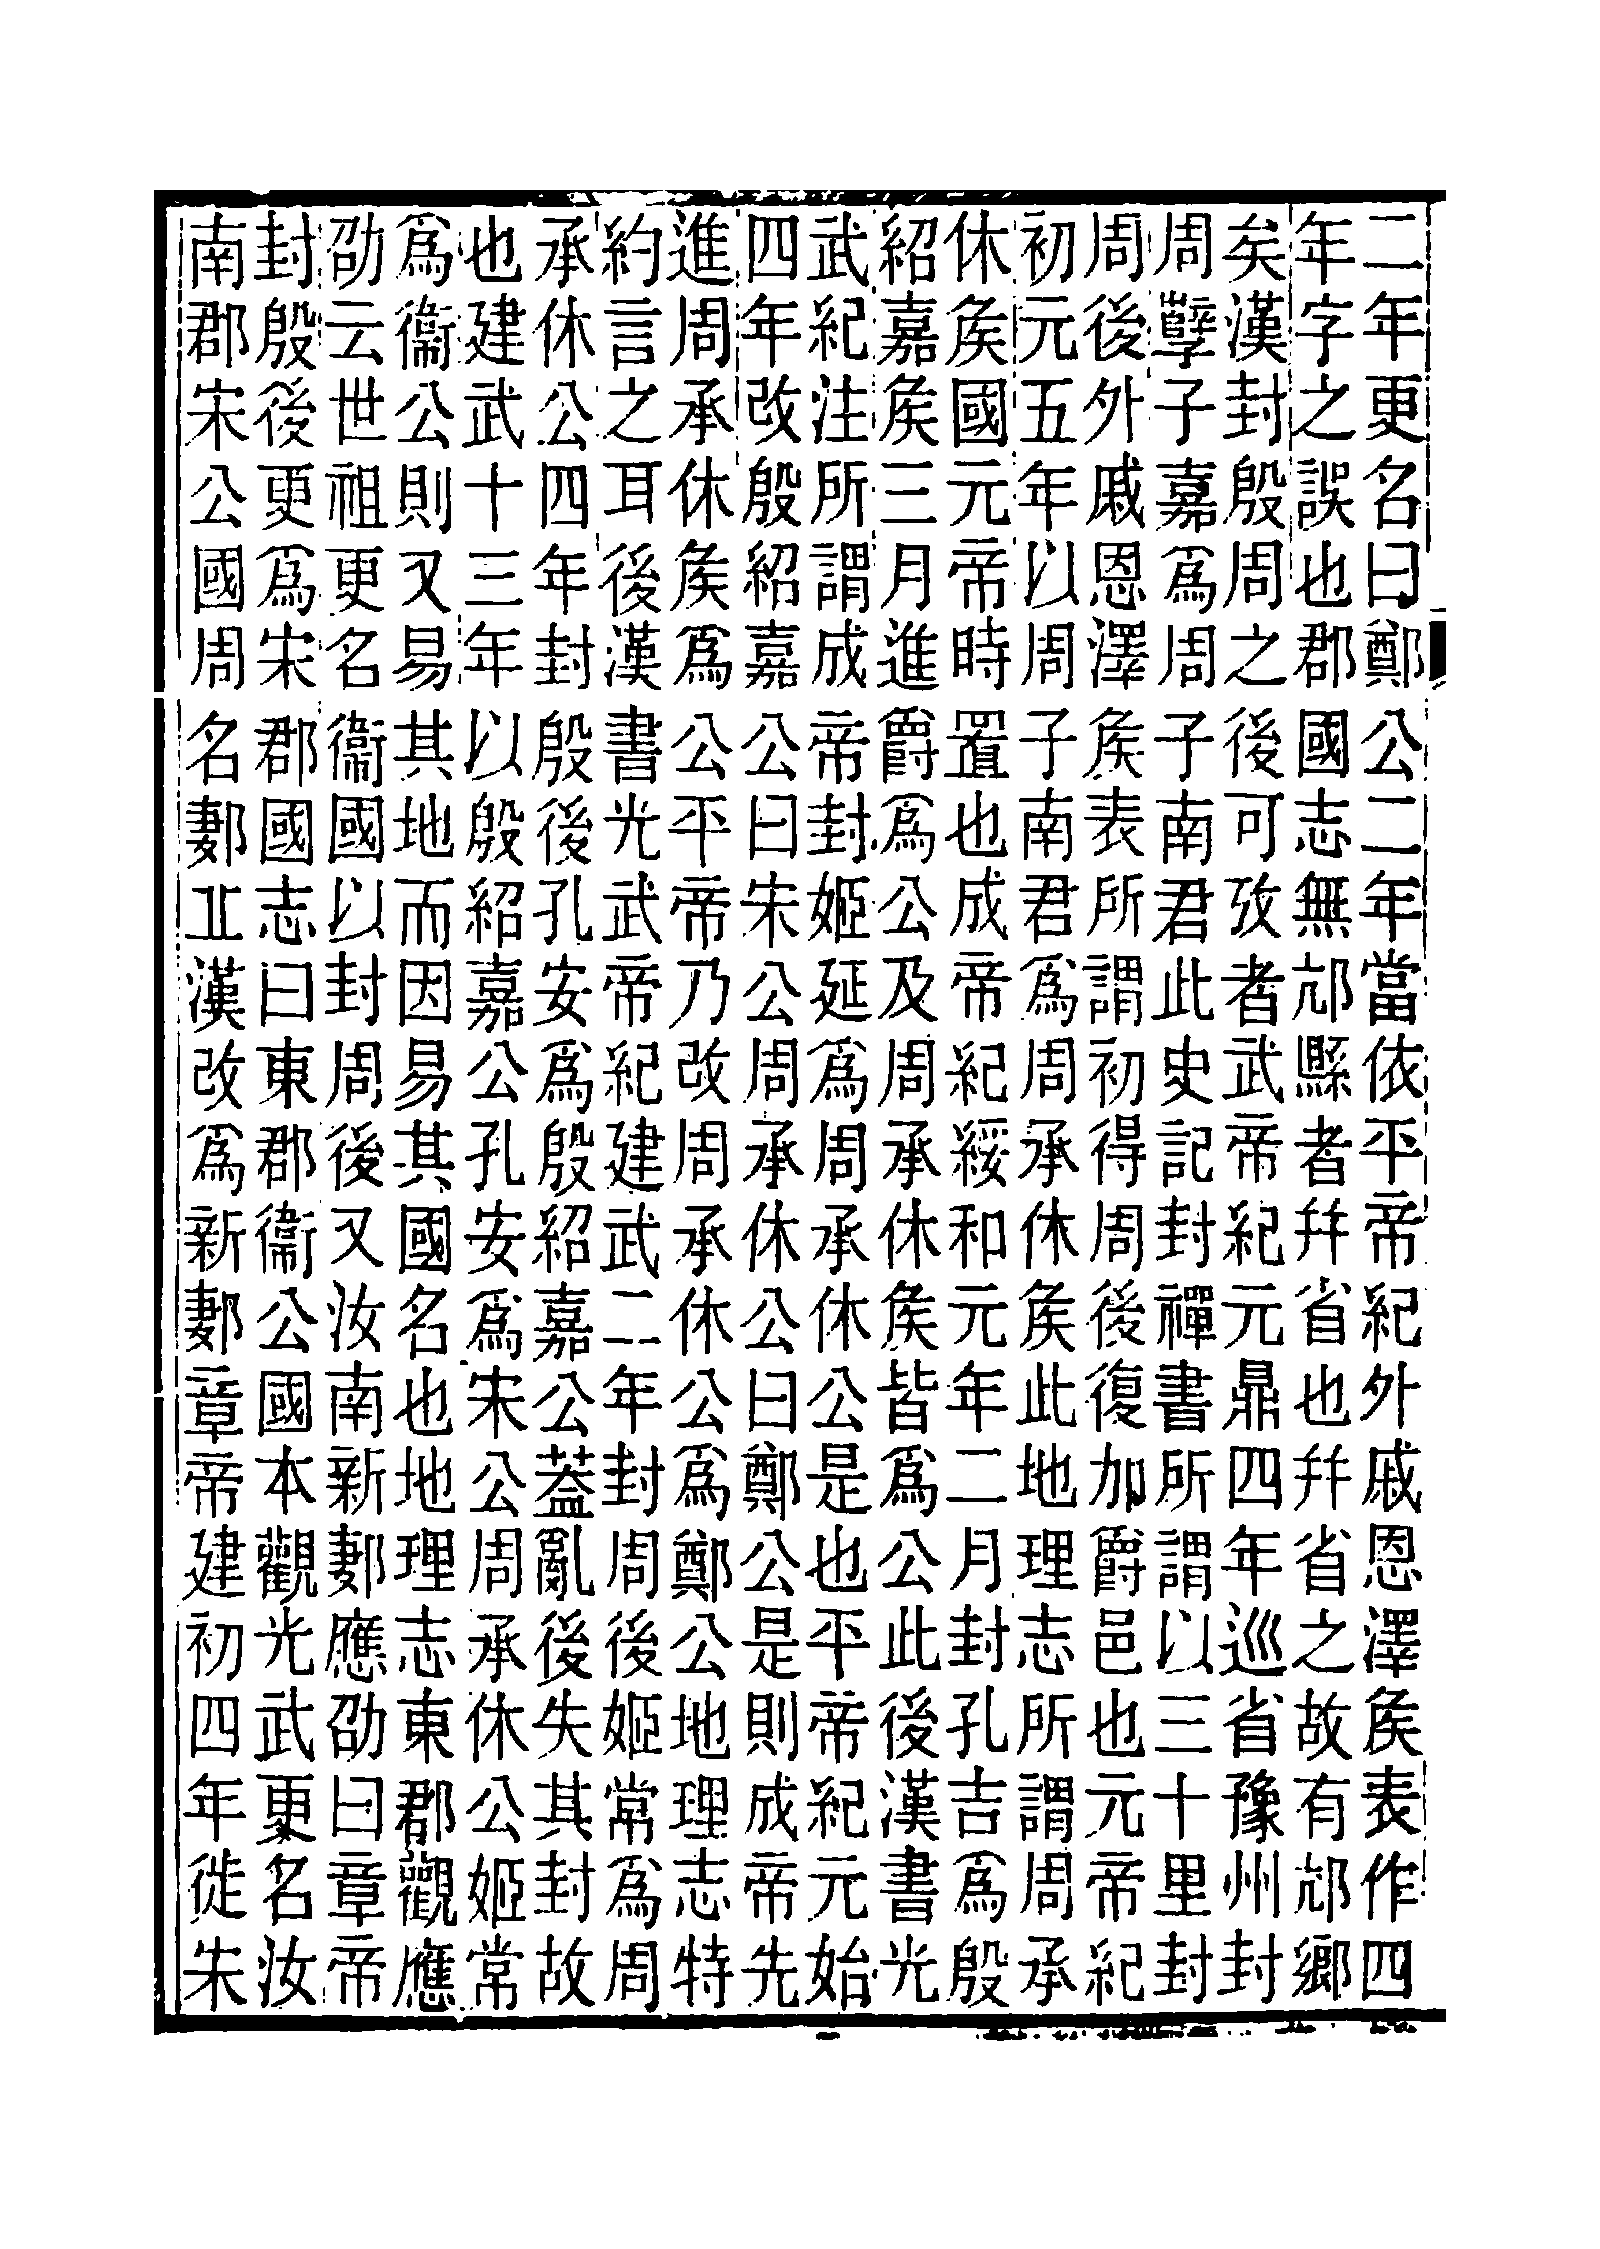 二年更名曰鄭公二年當依平帝紀外戚恩澤矦表作四
年字之誤也郡國志無邟縣者幷省也幷省之故有邟鄉
矣漢封殷周之後可攷者武帝紀元鼎四年巡省豫州封
周孼子嘉爲周子南君此史記封禪書所謂以三十里封
周後外戚恩澤矦表所謂初得周後復加爵邑也元帝紀
初元五年以周子南君爲周承休矦此地理志所謂周承
休矦國元帝時置也成帝紀綏和元年二月封孔吉爲殷
紹嘉矦三月進爵爲公及周承休矦皆爲公此後漢書光
武紀注所謂成帝封姬延爲周承休公是也平帝紀元始
四年改殷紹嘉公曰宋公周承休公曰鄭公是則成帝先
進周承休矦爲公平帝乃改周承休公爲鄭公地理志特
約言之耳後漢書光武帝紀建武二年封周後姬常爲周
承休公四年封殷後孔安爲殷紹嘉公葢亂後失其封故
也建武十三年以殷紹嘉公孔安爲宋公周承休公姬常
爲衞公則又易其地而因易其國名也地理志東郡觀應
劭云世祖更名衞國以封周後又汝南新郪應劭曰章帝
封殷後更爲宋郡國志曰東郡衞公國本觀光武更名汝
南郡宋公國周名郪丘漢改爲新郪章帝建初四年徙宋